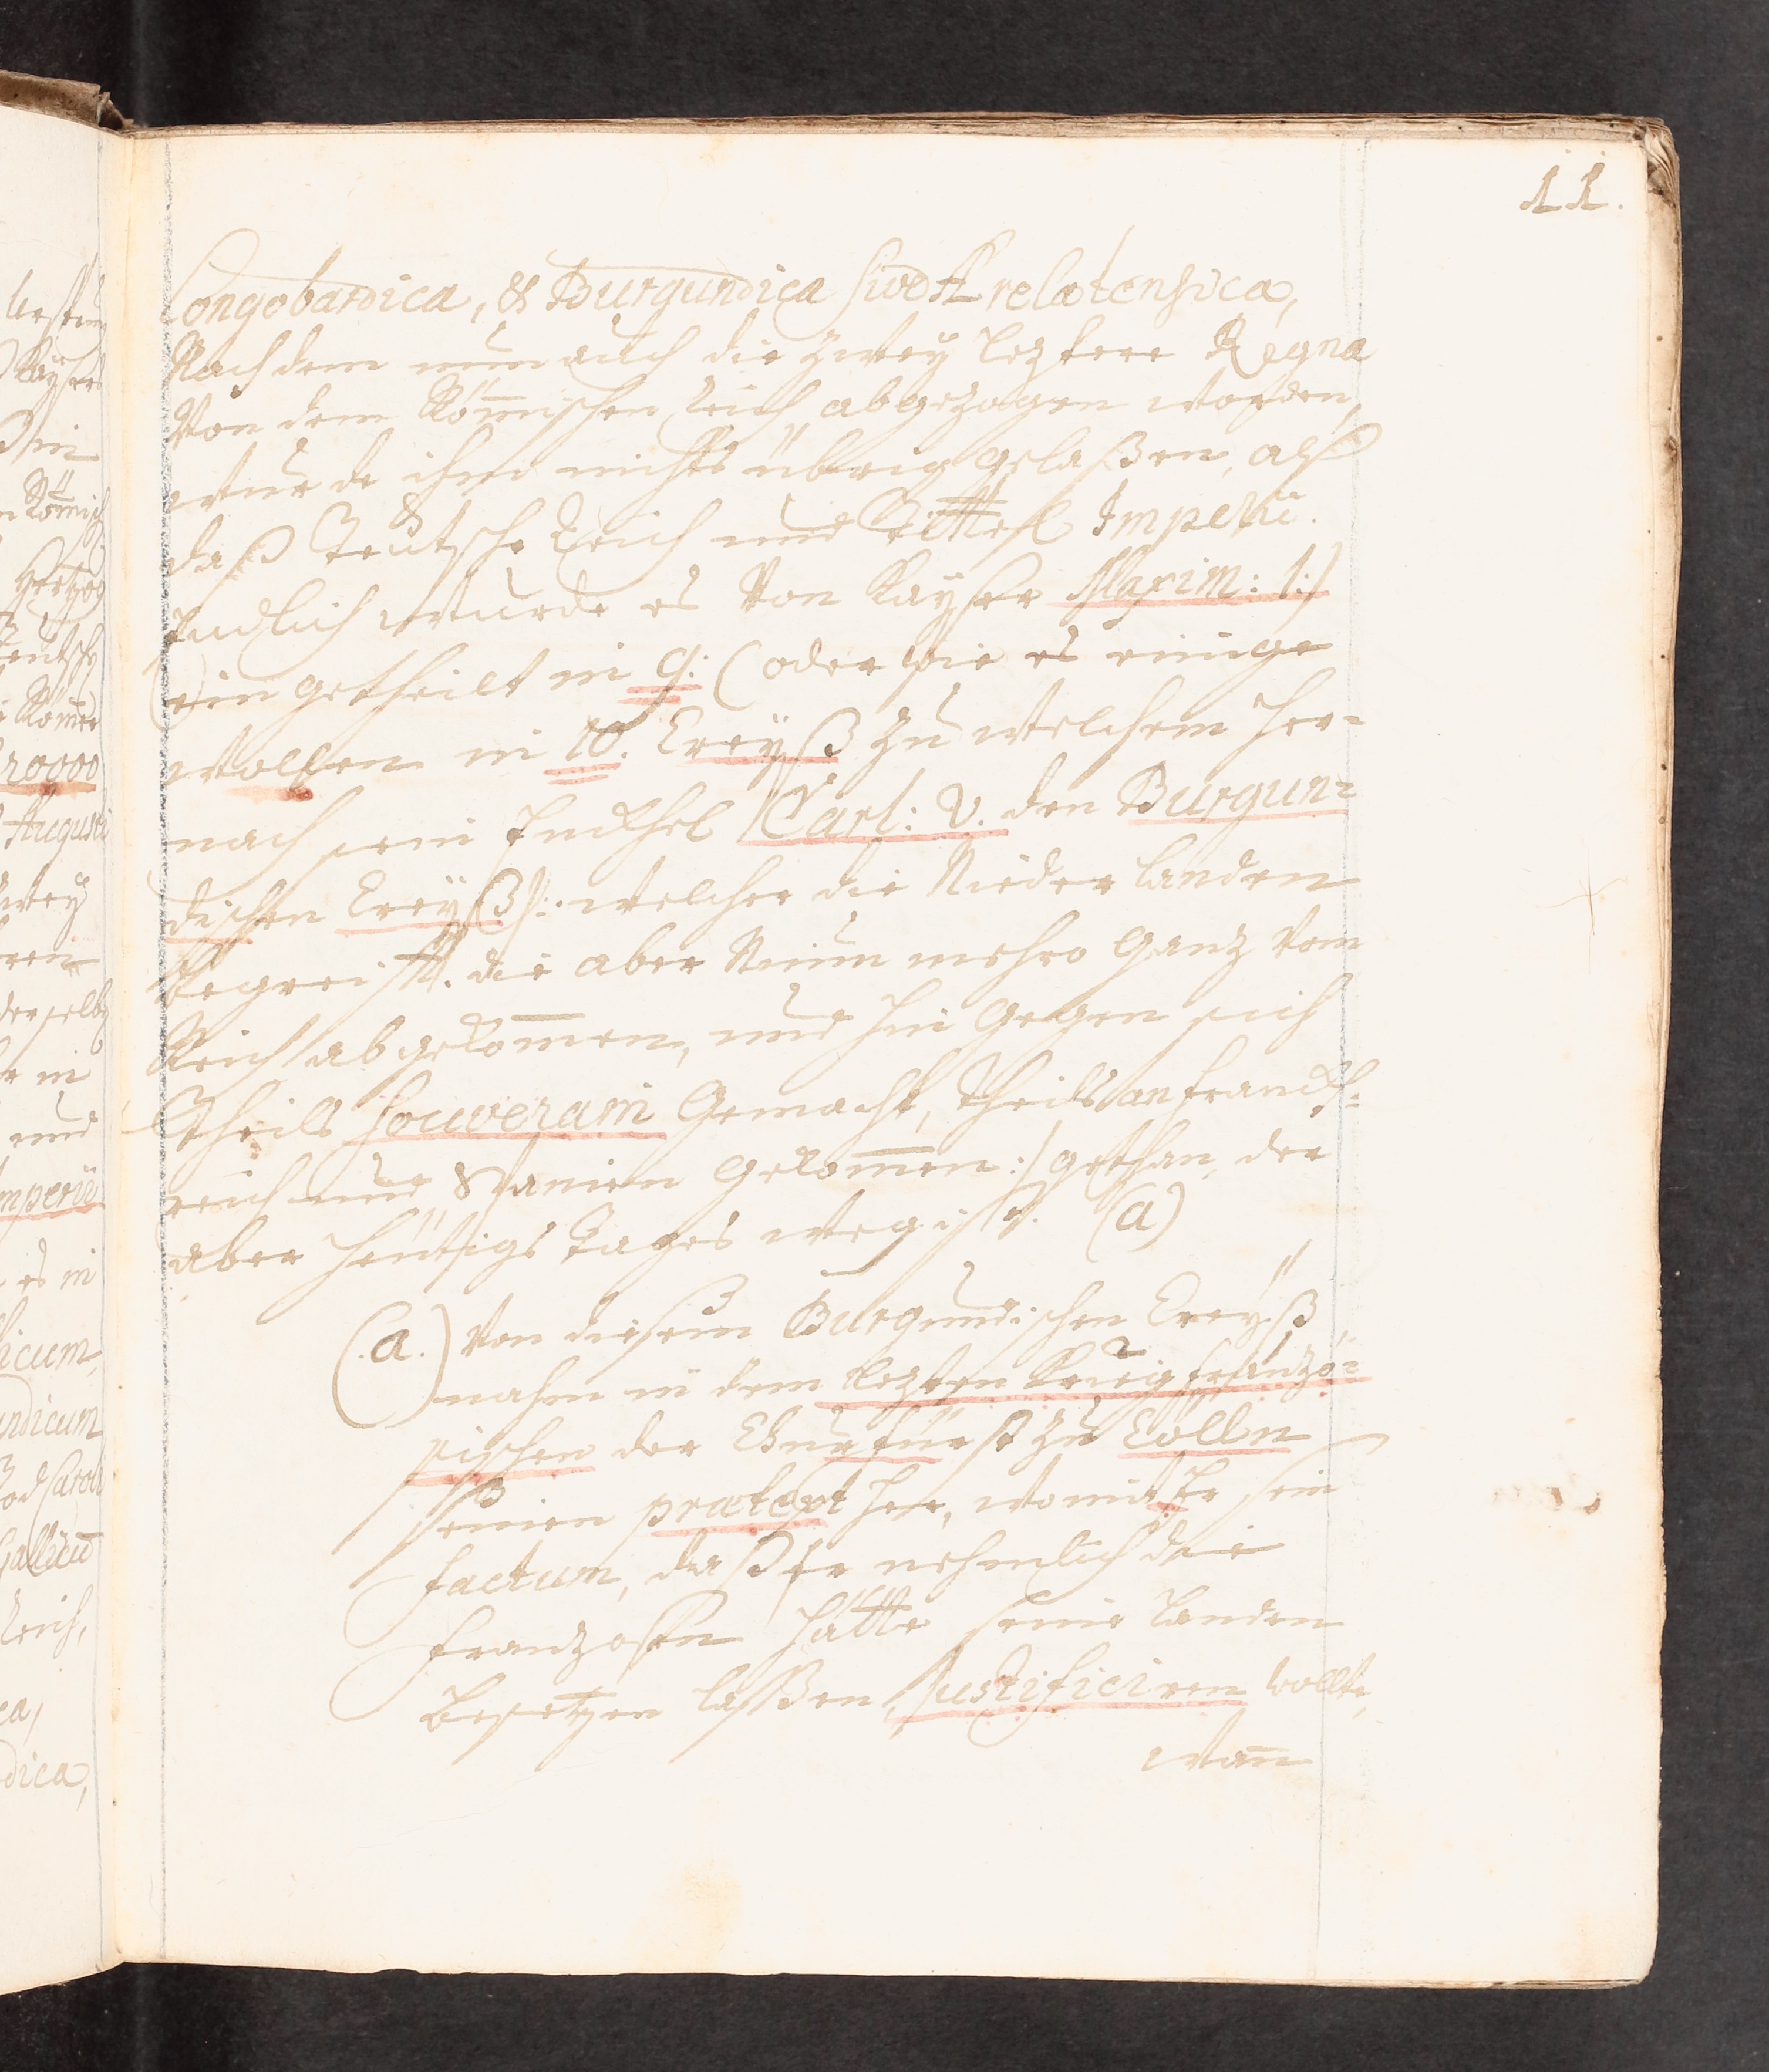 11.
Longobardica, & Burgundica sive Arelatensica,
Nachdem nun auch die zwey leztere Regna
Von dem Römischen Reich abgezogen worden,
wurde ihm nichts übrig gelaßen, alß
daß Teutsche Reich und Tittel Imperii.
Endlich wurde es Von Kayser Maxim: 1:/
ein getheilt in 9. (oder wie es einige
wollen in 10. Creyß zu welchem her=
nach sein Enckhel /Carl: V. den Burgun=
dischen Creyß/: welcher die Niederlanden
begreifft. die aber Nunmehro Ganz Vom
Reich abgekommen, und hin Gegen sich
Theils souverain Gemacht, Theils an Franckh=
reich und Spanien Gekommen:/ gethan, der
aber heutigs Tages weg ist. (a)
(a.) Von diesem Burgundischen Creyß
nahm in dem lezten Krieg französ=
sischen der Churfürst zu Cölln
seinen prætext her, womit Er sein
factum, daß Er nehmlich die
Franzosen hätte seine Landen
besetzen laßen, Justificiren wollte,
wann